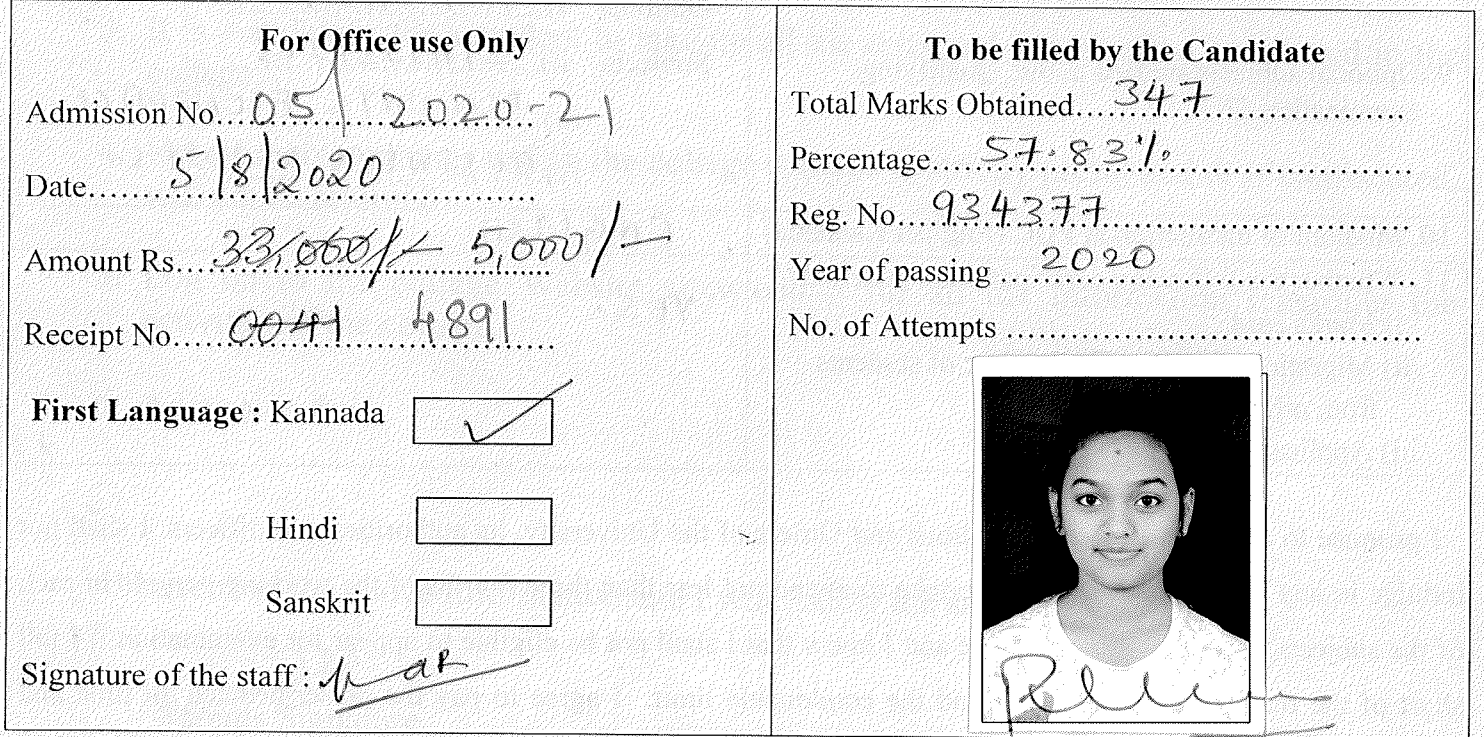 For Office use Only
Admission No...05/2020-21
Date...5/8/2020
Amount Rs...33,000/- 5,000/-
Receipt No...0041 4891
First Language : Kannada ✓
Hindi
Sanskrit
Signature of the staff :
To be filled by the Candidate
Total Marks Obtained...347
Percentage...57.83%
Reg. No...934377
Year of passing ...2020
No. of Attempts ...